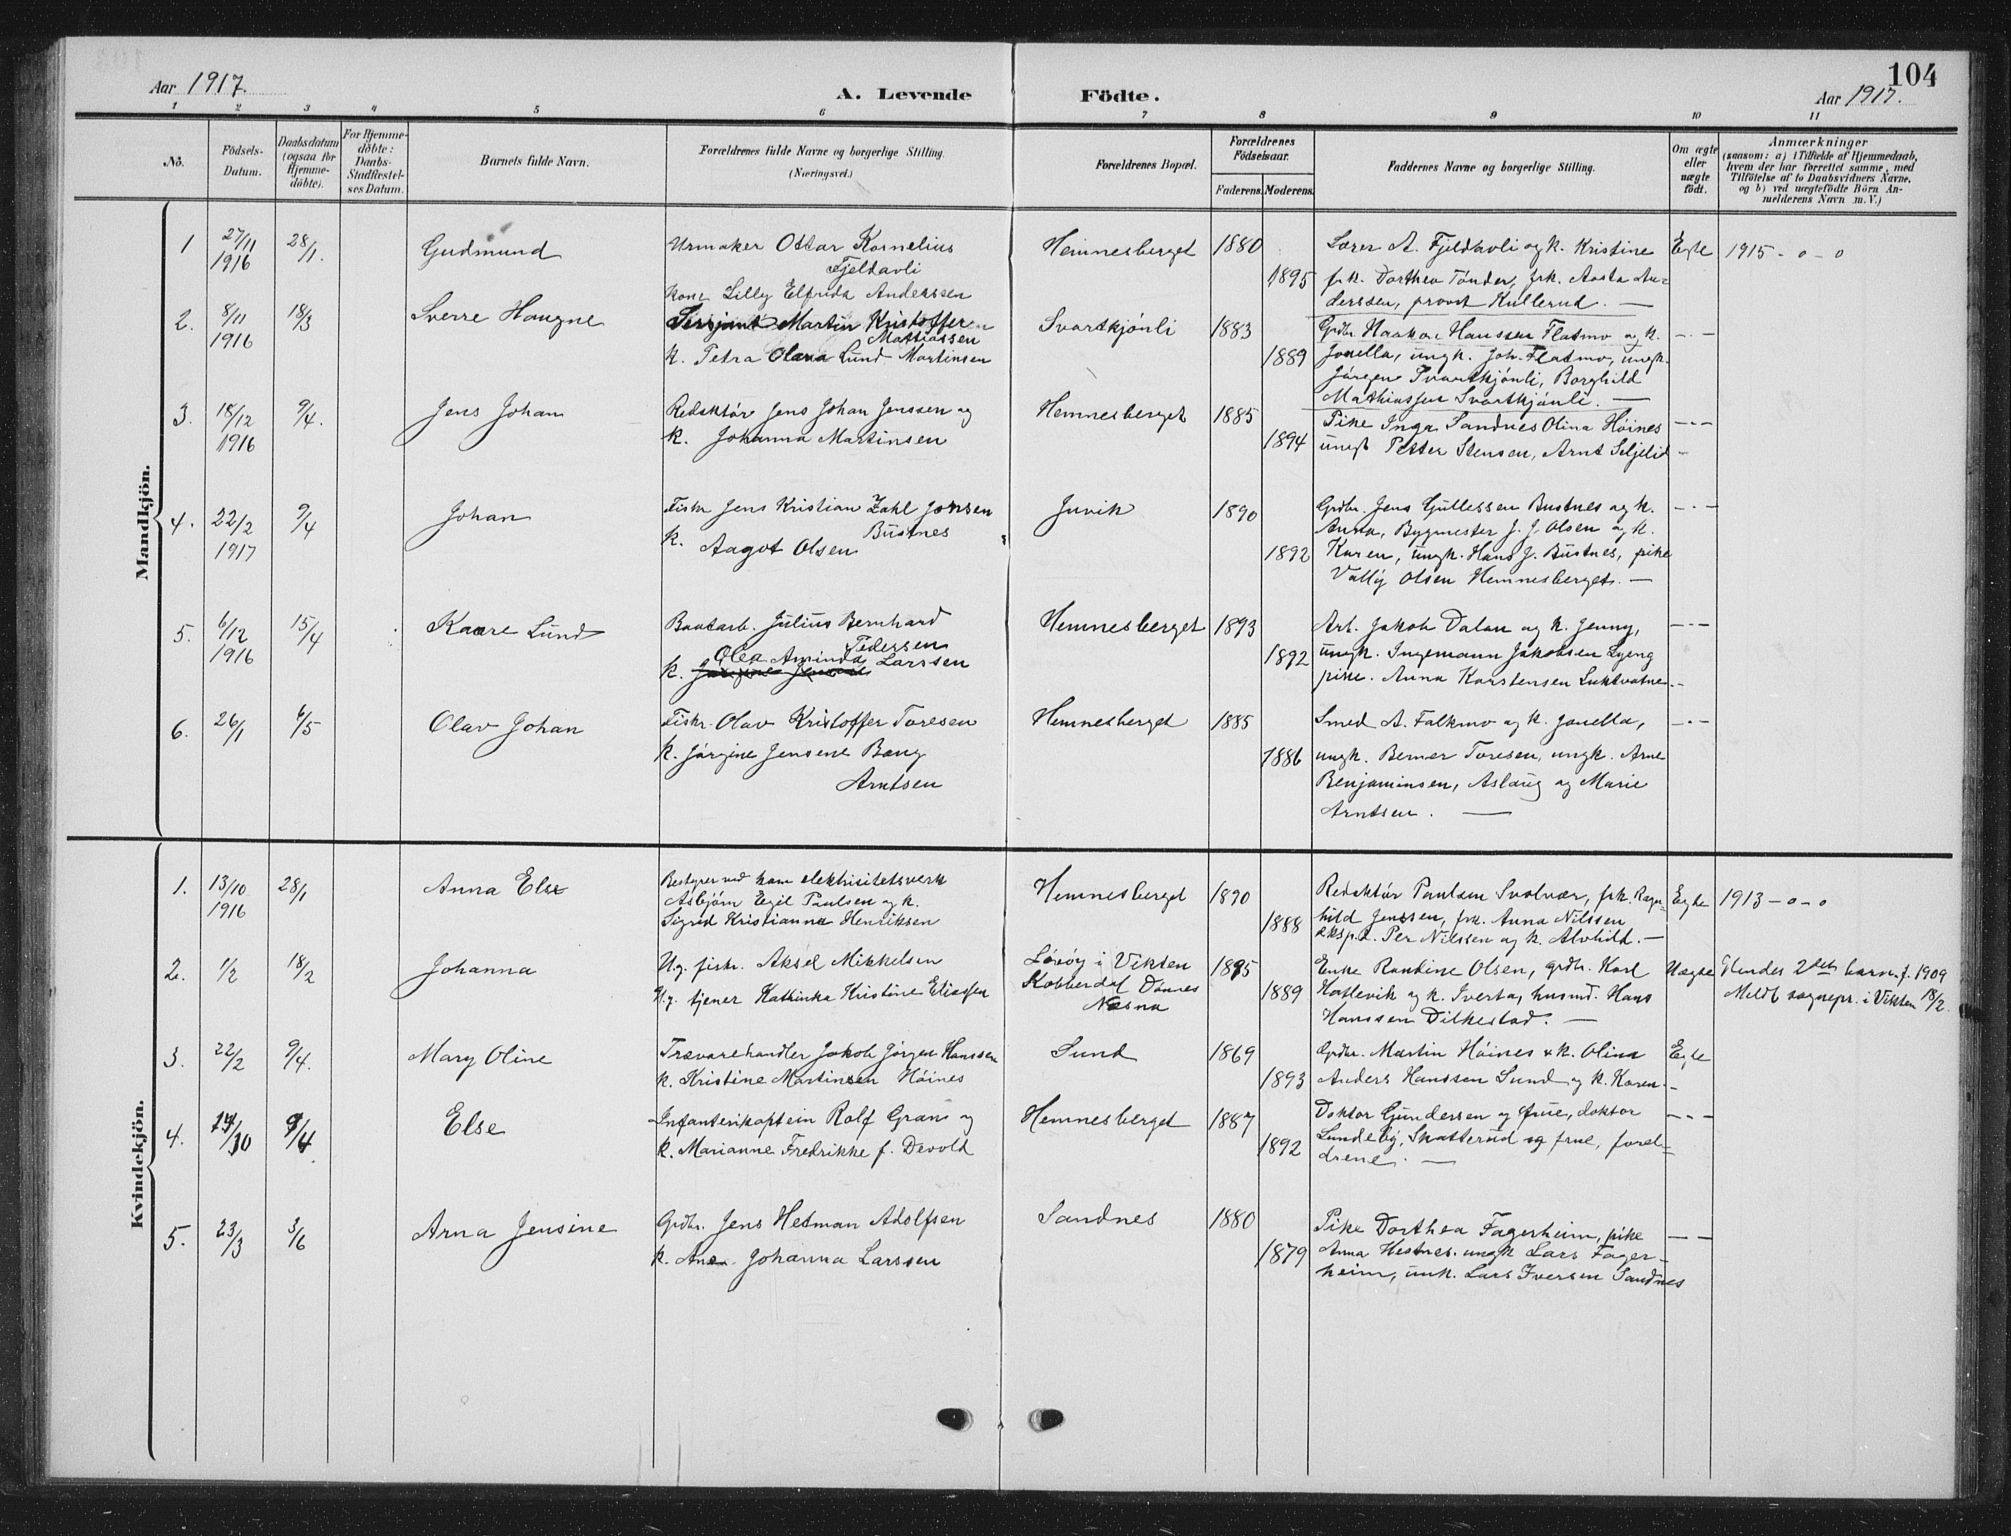 104
Aar 1917.
A. Levende Födte.
Aar 1917.
1 2 3 4 5 6 7 8 9 10 11
No.
Födsels-Datum.
Daabsdatum (ogsaa for Hjemme-döbte).
For Hjemme-döbte: Daabs-Stadfæstel-ses Datum.
Barnets fulde Navn.
Forældrenes fulde Navne og borgerlige Stilling.
(Næringsvei.)
Forældrenes Bopæl.
Forældrenes Födselsaar.
Faderens. Moderens.
Faddernes Navne og borgerlige Stilling.
Om ægte eller uægte født.
Anmærkninger
(saasom: a) i Tilfælde af Hjemmedaab,
hvem der har forrettet samme, med
Tilföielse af to Daabsvidners Navne,
og b) ved uægtefödte Börn An-
melderens Navn m. V.)
Mandkjön.
1 27/11 1916 28/1. Gudmund
Urmaker Ottar Kornelius
Fjeldavli
Kone Lilly Elfrida Anderssen
Hemnesberget 1880 1895
Lærer A. Fjeldavli og k. Kristine
frk. Dorthea Tönder, frk. Aasta An-
derssen, provst Kullerud. —
Egte 1915 - o - o
2. 8/11 1916 18/3 Sverre Haugne
Sersjant Martin Kristoffer
Mathiassen
k. Petra Olana Lund Martinsen
Svartkjönli 1883 1889
Grdbr. Haakon Hanssen Flatmo og k.
Jonella, ungk. Joh. Flatmo, ungk.
Jörgen Svartkjönli, Borghild
Mathiassen Svartkjönli. —
- . -
3. 18/12 1916 9/4. Jens Johan
Redaktör Jens Johan Jenssen og
k. Johanna Martinsen
Hemnesberget 1885 1894
Pike Inga Sandnes Olina Höines
ungk Petter Stensen, Arnt Seljelid -
- - -
4. 22/2 1917 9/4 Johan
Fiskr Jens Kristian Zahl Jonsen
Bustnes
k. Aagot Olsen
Juvik 1890 1892
Grdbr. Jens Gullessen Bustnes og k.
Anna, Bygmester J. J. Olsen og k.
Karen, ungk. Hans J. Bustnes, pike
Vally Olsen Hemnesberget. —
- . -
5. 6/12 1916 15/4 Kaare Lund
Baatarb. Julius Bernhard
Pedersen
Olea Aminda
k. Larssen
Hemnesberget 1893 1892
Arb. Jakob Dalan og k. Jenny,
ungk. Ingemann Jakobsen Lyeng
pike. Anna Karstensen Luktvatne. -
- - -
6. 26/1 6/5 Olav Johan
Fiskr. Olav Kristoffer Toresen
k. Jörgine Jensene Bang
Arntsen
Hemnesberget 1885 1886
Smed A. Falkmo og k. Jonella,
ungk. Berner Toresen, ungk. Arne
Benjaminsen, Aslaug og Marie
Arntsen. —
- . -
Kvindekjön.
1. 13/10 1916 28/1 Anna Else
Bestyrer ved kom elektrisitetsverk
Asbjörn Egil Paulsen og k.
Sigrid Kristianna Henriksen
Hemnesberget 1890 1888
Redaktör Paulsen Svolvær, frk. Ragn-
hild Jenssen, frk. Anna Nilssen
eksp.d. Per Nilssen og k. Alvhild. —
Egte 1913 - o - o
2. 1/2 18/2 Johanna
Ug. fiskr. Aksel Mikkelsen
Ug. tjener Kathinka Kristine Eliassen
Lövöy i Vikten
Kobberdal Dönnes
Nesna
1895 1889
Enke Randine Olsen, grdbr. Karl
Hatlevik og k. Iverta, husmd. Hans
Hanssen Dilkestad. —
Uægte
Hendes 2det barn f. 1909
Meldt sognepr. i Vikten 18/2.
3. 22/2 9/4. Mary Oline
Trævarehandler Jakob Jörgen Hanssen
k. Kristine Martinsen Höines
Sund 1869 1893
Grdbr. Martin Höines & k. Olina
Anders Hanssen Sund og k. Karen. -
Egte
4. 14/10 9/4 Else
Infanterikaptein Rolf Gran og
k. Marianne Fredrikke f. Devold
Hemnesberget 1887 1892
Doktor Gundersen og frue, doktor
Lundeby, Skatterud og frue, forel-
drene. —
- - -
5. 23/3 3/6 Arna Jensine
Grdbr. Jens Hetman Adolfsen
k. Ane. Johanna Larssen
Sandnes 1880 1879
Pike Dorthea Fagerheim, pike
Anna Hestnes. ungk Lars Fager-
heim, unk. Lars Iversen Sandnes
- -